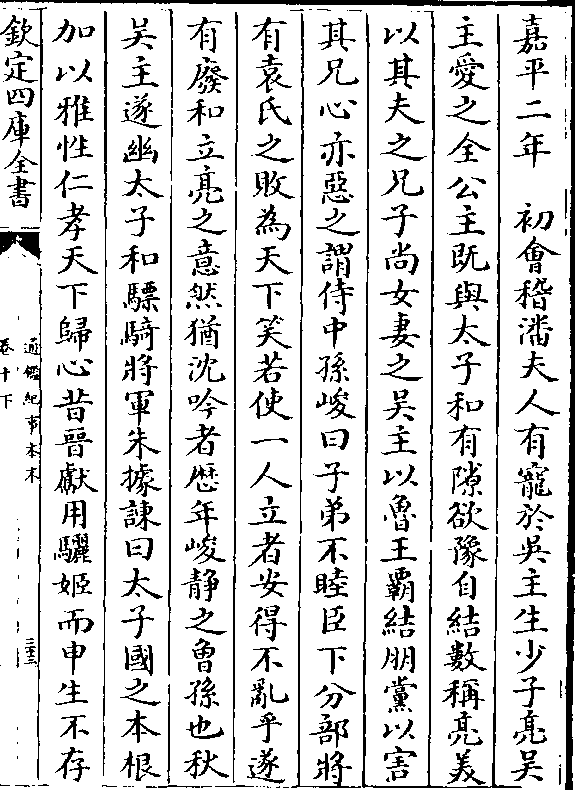 嘉平二年　初會稽潘夫人有寵於吳主生少子亮吳
主愛之全公主既與太子和有隙欲豫自結數稱亮美
以其夫之兄子尚女妻之吳主以魯王霸結朋黨以害
其兄心亦惡之謂侍中孫峻曰子弟不睦臣下分部將
有袁氏之敗為天下笑若使一人立者安得不亂乎遂
有廢和立亮之意然猶沈吟者歴年峻静之曾孫也秋
吳主遂幽太子和驃騎將軍朱據諫曰太子國之本根
加以雅性仁孝天下歸心昔晉獻用驪姬而申生不存
欽定四庫全書
通鑑紀事本末
卷十下